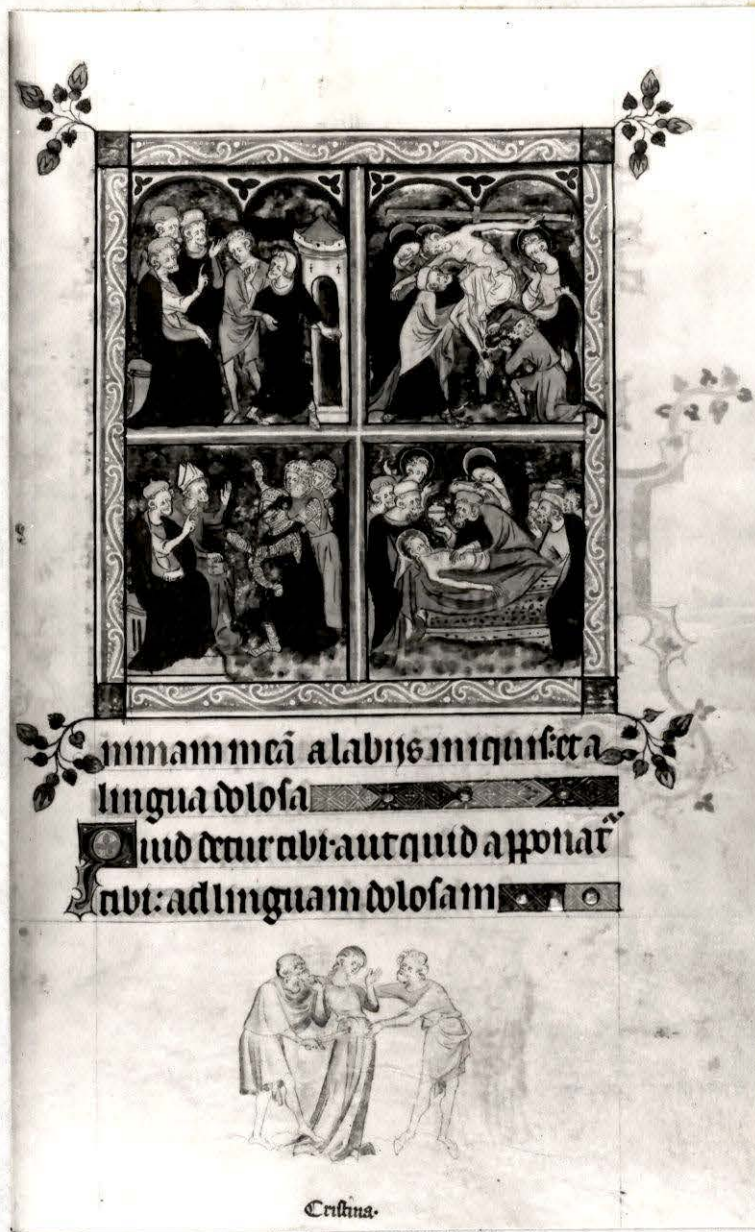 nimam meā a labijs iniquis: et a
lingua dolosa
Quid detur tibi· aut quid apponatr̄
tibi: ad linguam dolosam
Cristina·